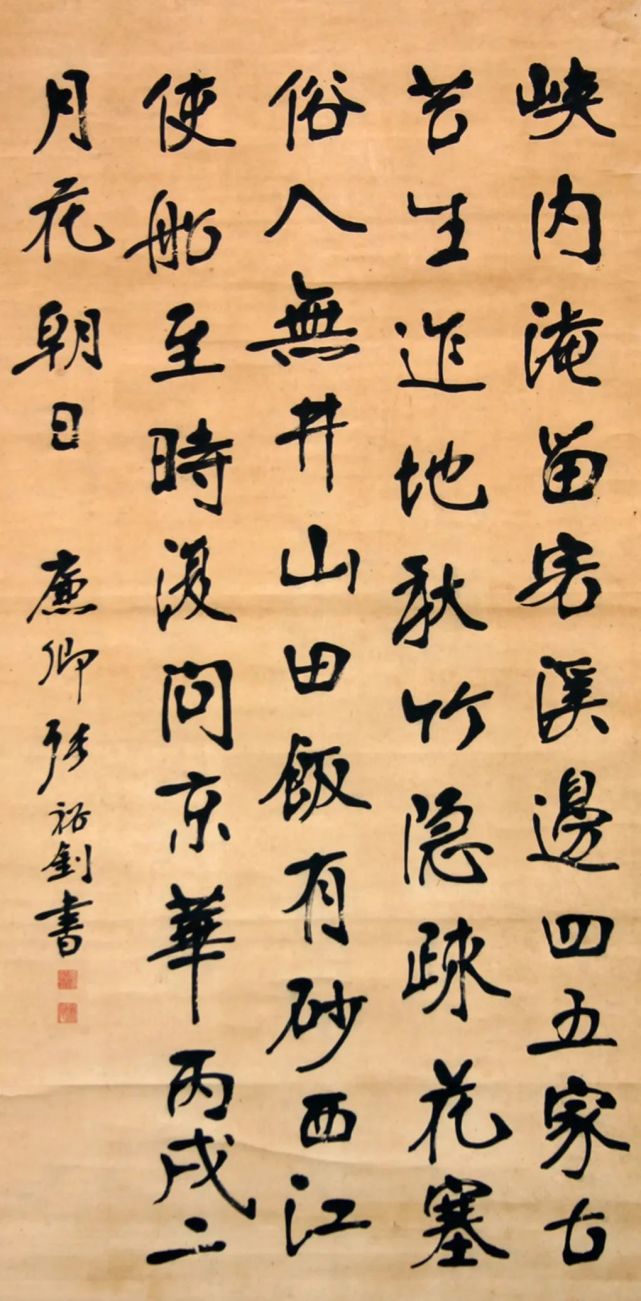 峽內淹留客溪邊四五家古
苔生迮地秋竹隱疎花塞
俗人無井山田飯有砂西江
使船至時復問京華丙戌二
月花朝日 廉卿張裕釗書